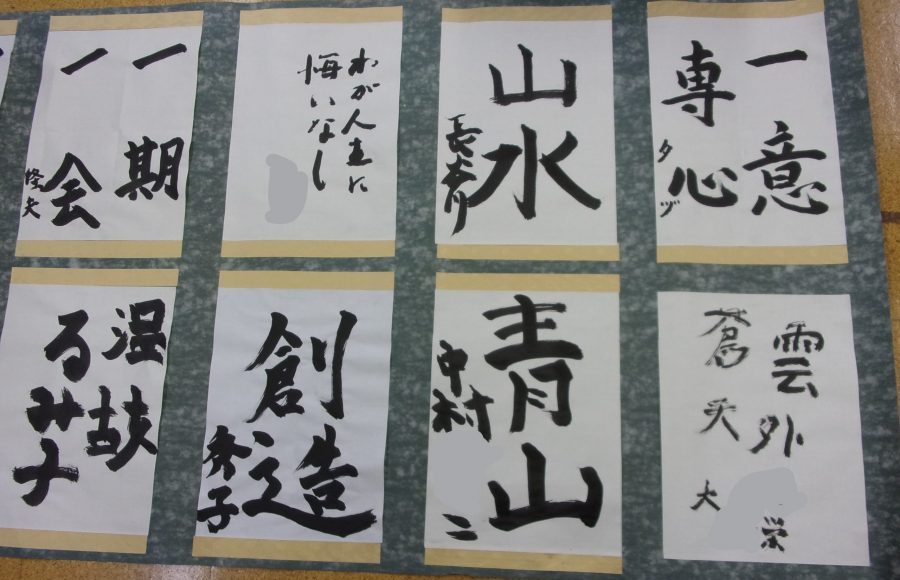 一意
専心
タヅ
山水
わが人生に
悔いなし
一期
一会
雲外
蒼天
大
栄
青山
中村
二
創造
秀子
温故
るみ子